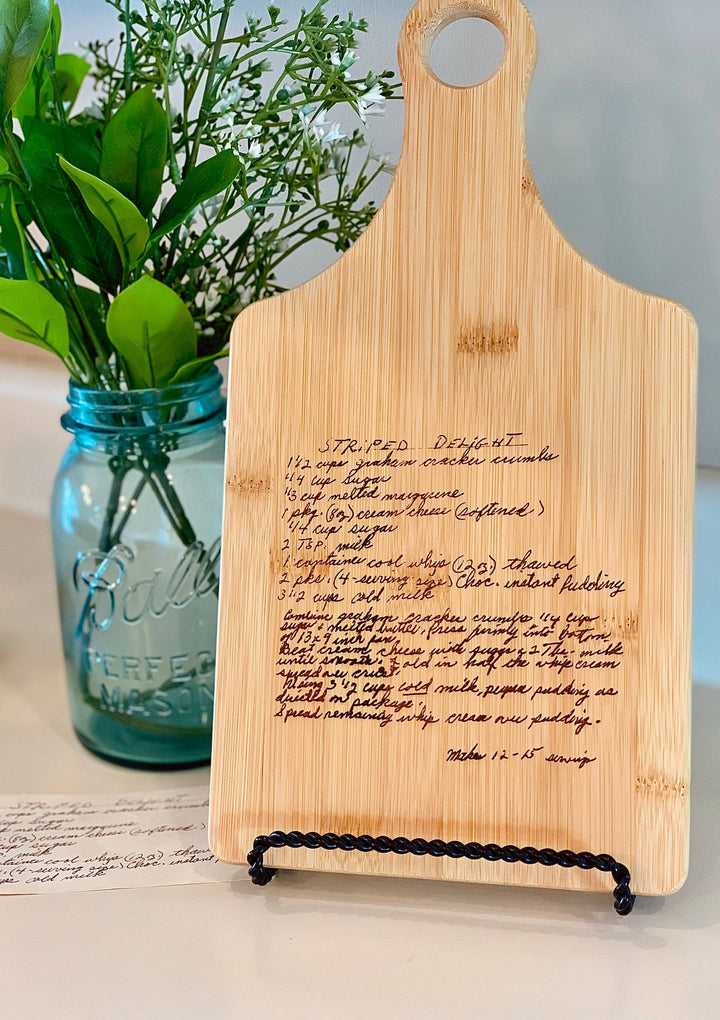 STRIPED DELIGHT
1 1/2 cups graham cracker crumbs
1/4 cup sugar
1/3 cup melted margerine
1 pkg. (8oz) cream cheese (softened)
1/4 cup sugar
2 TSP. milk
1 container cool whip (12oz) thawed
2 pks. (4-serving size) Choc. instant Pudding
3 1/2 cups cold milk
Combine graham cracker crumbs 1/4 cup
sugar + melted butter. Press firmly into bottom
of 13 x 9 inch pan.
Beat cream cheese with sugar + 2 Tbs. milk
until smooth. Fold in half the whip cream
spread over crust.
Using 3 1/2 cups cold milk, prepare pudding as
directed on package.
Spread remaining whip cream over pudding.
Makes 12-15 servings
Ball
PERFECT
MASON
STRIPED DELIGHT
cups graham cracker crumbs
cup sugar
melted margerine
(8oz) cream cheese (softened)
sugar
milk
container cool whip (12oz) thaw
(4-serving size) Choc. instant
cups cold milk